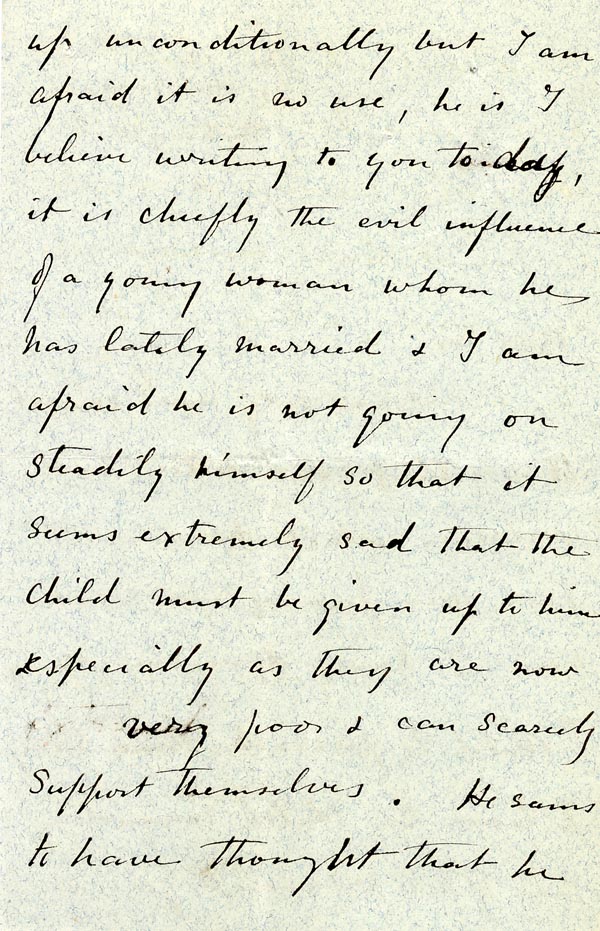 up unconditionally but I am
afraid it is no use, he is I
believe writing to you to day,
it is chiefly the evil influence
of a young woman whom he
has lately married & I am
afraid he is not going on
steadily himself so that it
seems extremely sad that the
child must be given up to him
especially as they are now
very poor & can scarcely
support themselves. He seems
to have thought that he